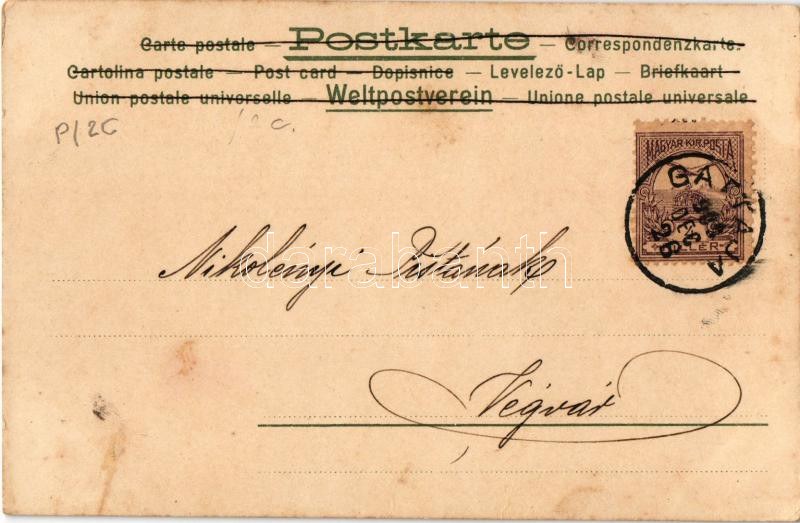 Carte postale — Postkarte — Correspondenzkarte.
Cartolina postale — Post card — Dopisnice — Levelező-Lap — Briefkaart
Union postale universelle — Weltpostverein — Unione postale universale
P/2C
MAGYAR KIR. POSTA
GATTAJA
DEC
26
Nikolényi Pistának
darabanth
Végvár